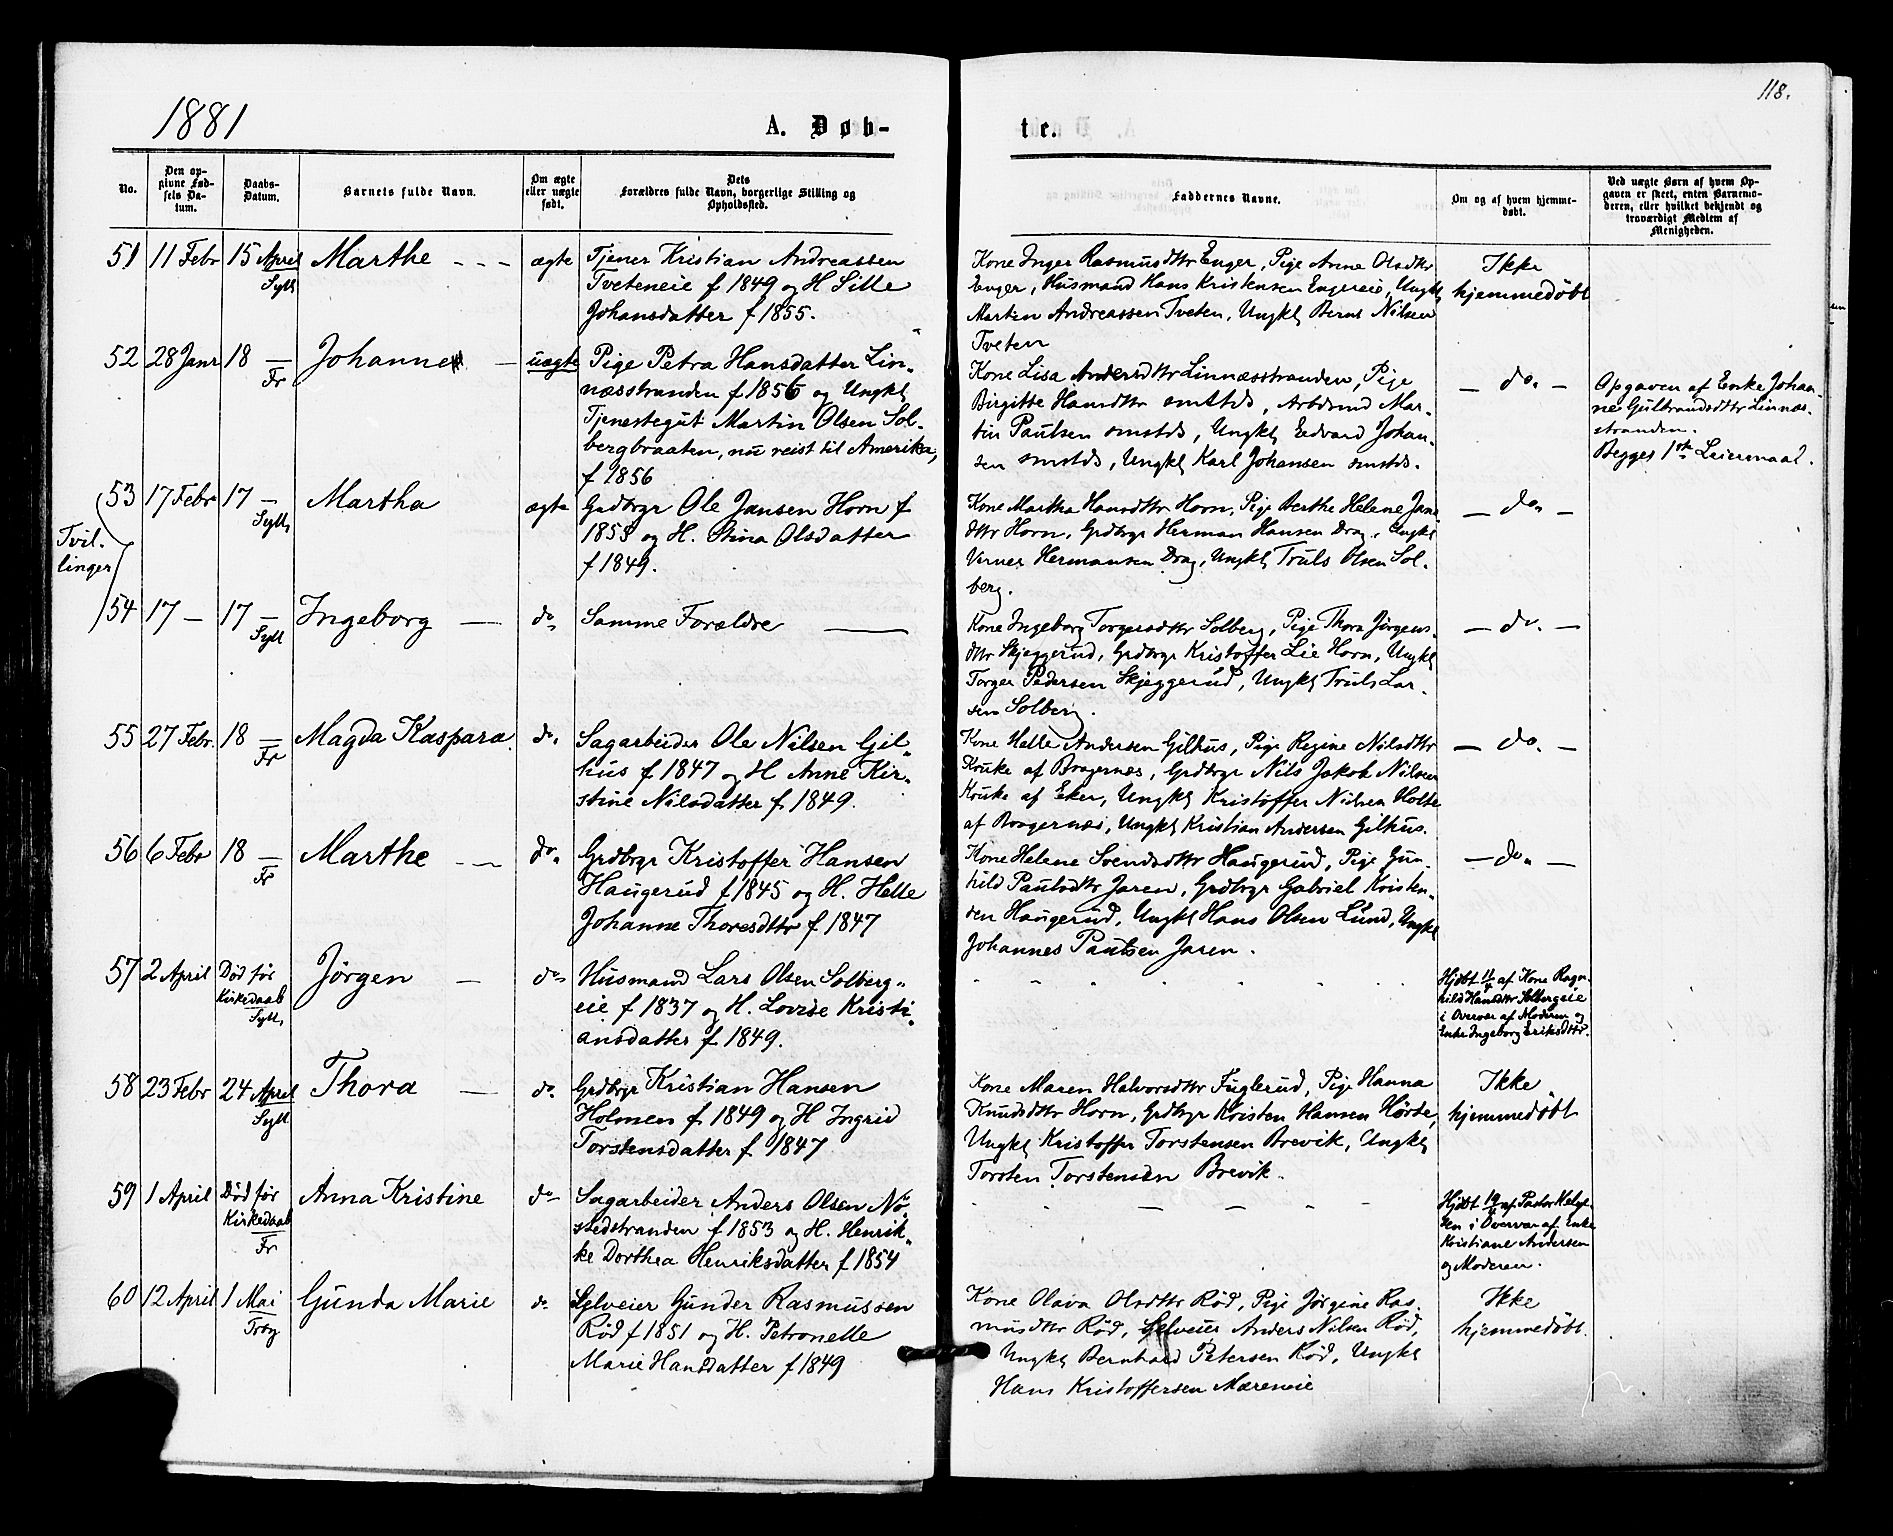 118.
1881
A. Døb-
te.
No.
Den op-
givne Fød-
sels Da-
tum.
Daabs-
Datum.
Barnets fulde Navn.
Om ægte
eller uægte
født.
Dets
Forældres fulde Navn, borgerlige Stilling og
Opholdssted.
Faddernes Navne.
Om og af hvem hjemme-
døbt.
Ved uægte Børn af hvem Op-
gaven er skeet, enten Barnemo-
deren, eller hvilket bekjendt og
troværdigt Medlem af
Menigheden.
51 11 Febr 15 April Marthe - - - ægte
Syll
Tjener Kristian Andreassen
Tveteneie f 1849 og H Sille
Johansdatter f 1855.
Kone Inger Rasmusdttr Enger, Pige Anne Olsdttr
Enger, Husmand Hans Kristensen Engereie, Ungk
Martin Andreassen Tveten, Ungk Bernt Nilsen
Tveten
Ikke
hjemmedøbt
52 28 Janr 18 — Johanne — uægte
Fr
Pige Petra Hansdatter Lin-
næsstranden f 1856 og Ungk
Tjenestegut Martin Olsen Sol-
bergbraaten, nu reist til Amerika,
f 1856
Kone Lisa Andersdttr Linnæsstranden, Pige
Birgitte Hansdttr smstds, Arbdsmd Mar-
tin Paulsen smstds, Ungk Edvard Johan-
sen smstds, Ungk Karl Johansen smstds.
— do. —
Opgaven af Enke Johan-
ne Gulbrandsdttr Linnæs-
stranden.
Begges 1ste Leiermaal.
Tvil-
linger
53 17 Febr 17 — Martha ægte
Syll
Grdbrgr Ole Jansen Horn f
1853 og H. Stina Olsdatter
f 1849.
Kone Martha Hansdttr Horn, Pige Berthe Helene Jans
dttr Horn, Grdbrgr Herman Hansen Drag, Ungk
Verner Hermansen Drag, Ungk Truls Olsen Sol-
berg.
— do —
54 17 — 17 — Ingeborg — do
Syll
Samme Forældre —
Kone Ingeborg Torgersdttr Solberg, Pige Thora Jørgens-
dttr Skjeggerud, Grdbrgr Kristoffer Lie Horn, Ungk
Torger Pedersen Skjeggerud, Ungk Truls Lar-
sen Solberg.
— do. —
55 27 Febr. 18 — Magda Kaspara. do.
Fr
Sagarbeider Ole Nilsen Gil-
hus f 1847 og H Anne Kir-
stine Nilsdatter f 1849.
Kone Helle Andersen Gilhus, Pige Regine Nilsdttr
Kruke af Bragernes, Grdbrgr Nils Jakob Nilsen
Kruke af Eker, Ungk Kristoffer Nilsen Holte
af Bragernes, Ungk Kristian Andersen Gilhus.
— do. —
56 6 Febr 18 — Marthe - — do
Fr
Grdbrgr Kristoffer Hansen
Haugerud f 1845 og H. Helle
Johanne Thoresdttr f 1847
Kone Helene Svendsdttr Haugerud, Pige Gun-
hild Paulsdttr Jaren, Grdbrgr Gabriel Kristen-
sen Haugerud, Ungk Hans Olsen Lund, Ungk
Johannes Paulsen Jaren.
— do —
57 2 April Død før Jørgen — do
Kirkedaab
Syll
Husmand Lars Olsen Solberg-
eie f 1837 og H. Lovise Kristi-
ansdatter f 1849.
Hjdbt 11/4 af Kone Ragn-
hild Hansdttr Solbergeie
i Overvær af Moderen og
Enke Ingeborg Eriksdttr.
58 23 Febr 24 April Thora — do.
Syll
Grdbrgr Kristian Hansen
Holmen f. 1849 og H Ingrid
Torstensdatter f. 1847
Kone Maren Halvorsdttr Fuglerud, Pige Hanna
Knudsdttr Horn, Grdbrgr Kristen Hansen Hørte,
Ungk Kristoffer Torstensen Brevik, Ungk
Torsten Torstensen Brevik.
Ikke
hjemmedøbt
59 1 April Død før Anna Kristine do
Kirkedaab
Fr
Sagarbeider Anders Olsen Nø-
stedstranden f 1853 og H. Henrik-
ke Dorthea Henriksdatter f 1854
Hjdbt 19/4 af Pastor
sen i Overvær af Enke
Kristiane Andersen
og Moderen.
60 12 April 1 Mai Gunda Marie do
Trøg
Selveier Gunder Rasmussen
Rød f 1851 og H. Petronelle
Marie Hansdatter f 1849
Kone Olava Olsdttr Rød, Pige Jørgine Ras-
musdttr Rød, Selveier Anders Nilsen Rød,
Ungk Bernhard Petersen Rød, Ungk
Hans Kristoffersen Mæreneie
Ikke
hjemmedøbt.